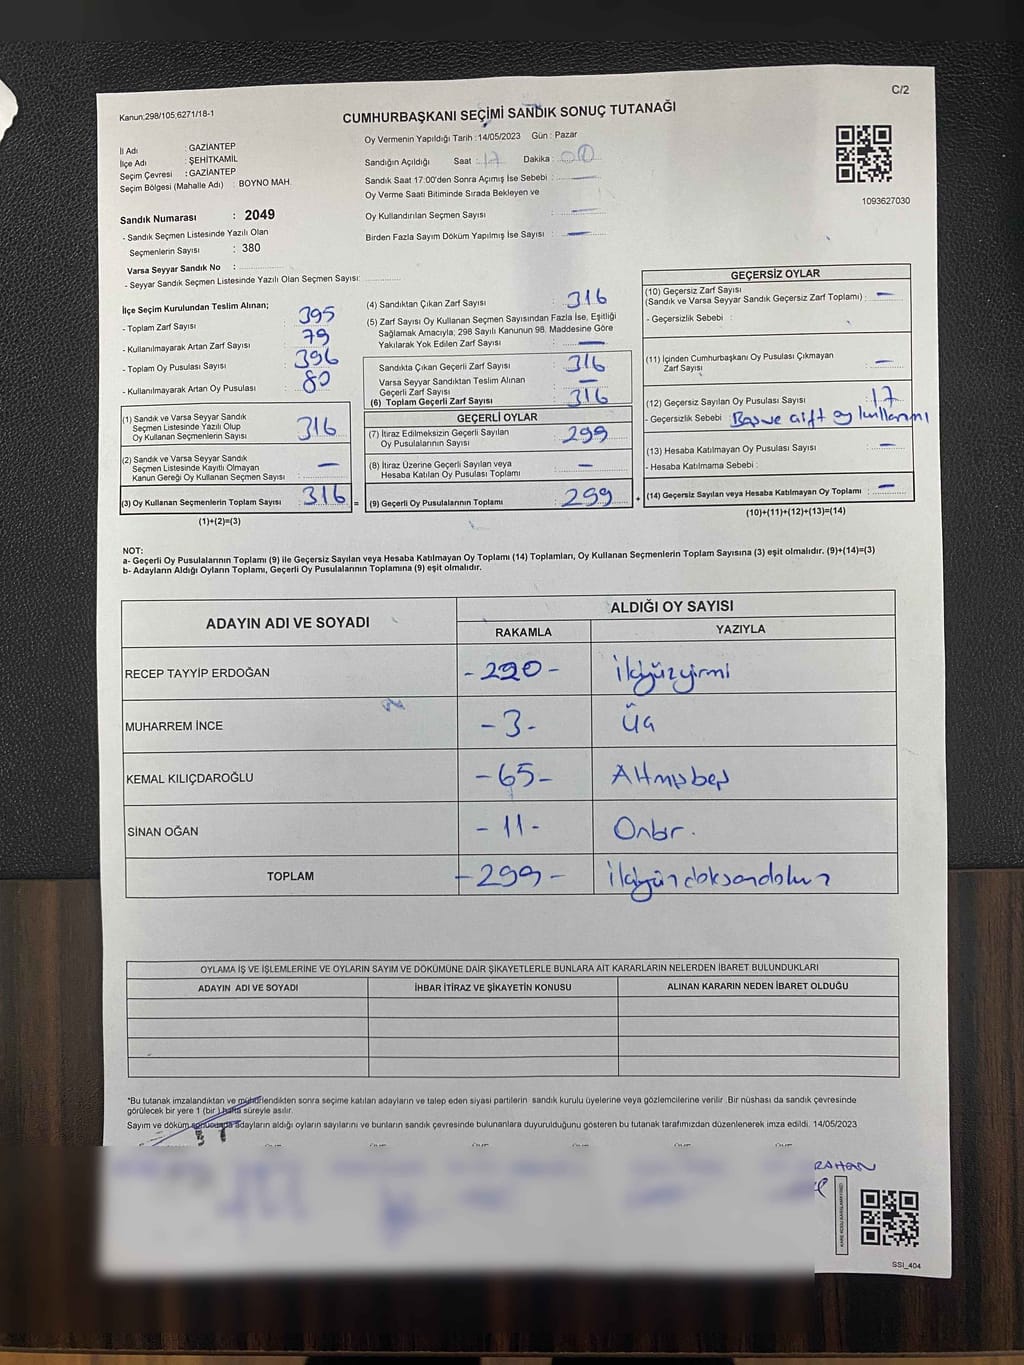 C/2
Kanun;298/105,6271/18-1
CUMHURBAŞKANI SEÇİMİ SANDIK SONUÇ TUTANAĞI
İl Adı : GAZİANTEP
İlçe Adı : ŞEHİTKAMİL
Seçim Çevresi : GAZİANTEP
Seçim Bölgesi (Mahalle Adı) : BOYNO MAH.
Oy Vermenin Yapıldığı Tarih : 14/05/2023 Gün : Pazar
Sandığın Açıldığı Saat : 17 Dakika : 00
Sandık Saat 17:00'den Sonra Açımış İse Sebebi : —
Oy Verme Saati Bitiminde Sırada Bekleyen ve
Oy Kullandırılan Seçmen Sayısı : —
Birden Fazla Sayım Döküm Yapılmış İse Sayısı : —
1093627030
Sandık Numarası : 2049
- Sandık Seçmen Listesinde Yazılı Olan
Seçmenlerin Sayısı : 380
Varsa Seyyar Sandık No :
- Seyyar Sandık Seçmen Listesinde Yazılı Olan Seçmen Sayısı:
İlçe Seçim Kurulundan Teslim Alınan;
- Toplam Zarf Sayısı : 395
- Kullanılmayarak Artan Zarf Sayısı : 79
- Toplam Oy Pusulası Sayısı : 396
- Kullanılmayarak Artan Oy Pusulası : 80
(1) Sandık ve Varsa Seyyar Sandık
Seçmen Listesinde Yazılı Olup
Oy Kullanan Seçmenlerin Sayısı : 316
(2) Sandık ve Varsa Seyyar Sandık
Seçmen Listesinde Kayıtlı Olmayan
Kanun Gereği Oy Kullanan Seçmen Sayısı : —
(3) Oy Kullanan Seçmenlerin Toplam Sayısı : 316 =
(1)+(2)=(3)
(4) Sandıktan Çıkan Zarf Sayısı : 316
(5) Zarf Sayısı Oy Kullanan Seçmen Sayısından Fazla İse, Eşitliği
Sağlamak Amacıyla, 298 Sayılı Kanunun 98. Maddesine Göre
Yakılarak Yok Edilen Zarf Sayısı : —
Sandıkta Çıkan Geçerli Zarf Sayısı : 316
Varsa Seyyar Sandıktan Teslim Alınan
Geçerli Zarf Sayısı : —
(6) Toplam Geçerli Zarf Sayısı : 316
GEÇERLİ OYLAR
(7) İtiraz Edilmeksizin Geçerli Sayılan
Oy Pusulalarının Sayısı : 299
(8) İtiraz Üzerine Geçerli Sayılan veya
Hesaba Katılan Oy Pusulası Toplamı : —
(9) Geçerli Oy Pusulalarının Toplamı : 299 +
GEÇERSİZ OYLAR
(10) Geçersiz Zarf Sayısı
(Sandık ve Varsa Seyyar Sandık Geçersiz Zarf Toplamı) : —
- Geçersizlik Sebebi :
(11) İçinden Cumhurbaşkanı Oy Pusulası Çıkmayan
Zarf Sayısı : —
(12) Geçersiz Sayılan Oy Pusulası Sayısı : 17
- Geçersizlik Sebebi : çift oy kullanımı
(13) Hesaba Katılmayan Oy Pusulası Sayısı : —
- Hesaba Katılmama Sebebi :
(14) Geçersiz Sayılan veya Hesaba Katılmayan Oy Toplamı : —
(10)+(11)+(12)+(13)=(14)
NOT:
a- Geçerli Oy Pusulalarının Toplamı (9) ile Geçersiz Sayılan veya Hesaba Katılmayan Oy Toplamı (14) Toplamları, Oy Kullanan Seçmenlerin Toplam Sayısına (3) eşit olmalıdır. (9)+(14)=(3)
b- Adayların Aldığı Oyların Toplamı, Geçerli Oy Pusulalarının Toplamına (9) eşit olmalıdır.
ADAYIN ADI VE SOYADI
ALDIĞI OY SAYISI
RAKAMLA YAZIYLA
RECEP TAYYİP ERDOĞAN -220- İkiyüzyirmi
MUHARREM İNCE -3- Üç
KEMAL KILIÇDAROĞLU -65- Altmışbeş
SİNAN OĞAN -11- Onbir.
TOPLAM -299- İkiyüzdoksandokuz
OYLAMA İŞ VE İŞLEMLERİNE VE OYLARIN SAYIM VE DÖKÜMÜNE DAİR ŞİKAYETLERLE BUNLARA AİT KARARLARIN NELERDEN İBARET BULUNDUKLARI
ADAYIN ADI VE SOYADI İHBAR İTİRAZ VE ŞİKAYETİN KONUSU ALINAN KARARIN NEDEN İBARET OLDUĞU
*Bu tutanak imzalandıktan ve mühürlendikten sonra seçime katılan adayların ve talep eden siyasi partilerin sandık kurulu üyelerine veya gözlemcilerine verilir .Bir nüshası da sandık çevresinde
görülecek bir yere 1 (bir ) hafta süreyle asılır.
Sayım ve döküm sonucunda adayların aldığı oyların sayılarını ve bunların sandık çevresinde bulunanlara duyurulduğunu gösteren bu tutanak tarafımızdan düzenlenerek imza edildi. 14/05/2023
RAHAN
SSI_404